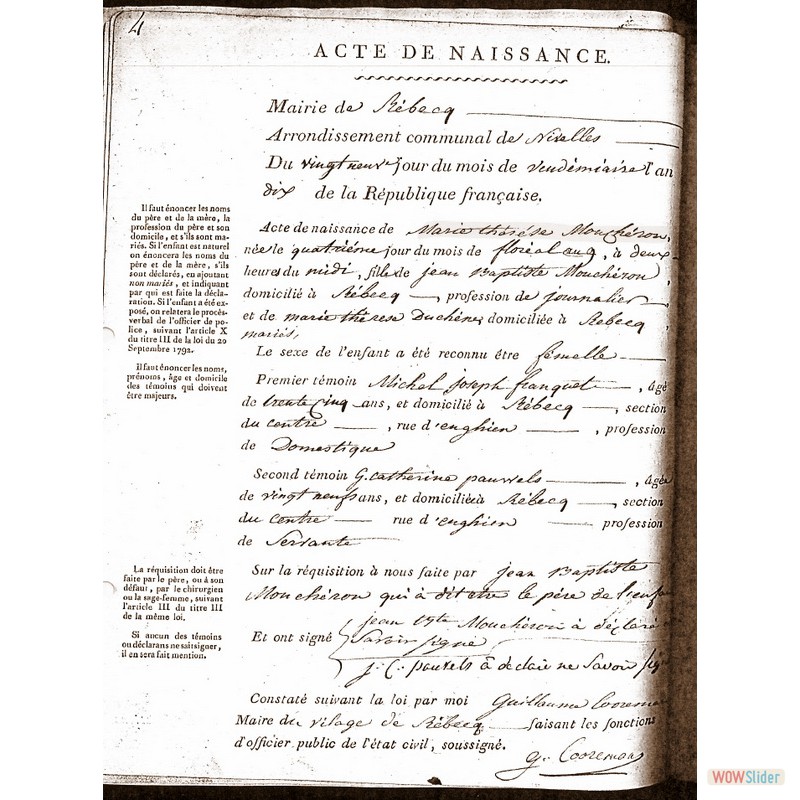 4
ACTE DE NAISSANCE.
Mairie de Rébecq
Arrondissement communal de Nivelles
Du vingt neuv.e jour du mois de vendémiaire l'an
dix de la République française.
Il faut énoncer les noms
du père et de la mère, la
profession du père et son
domicile, et s'ils sont ma-
riés. Si l'enfant est naturel
on énoncera les noms du
père et de la mère, s'ils
sont déclarés, en ajoutant
non mariés, et indiquant
par qui est faite la décla-
ration. Si l'enfant a été ex-
posé, on relatera le procès-
verbal de l'officier de po-
lice, suivant l'article X
du titre III de la loi du 20
Septembre 1792.
Il faut énoncer les noms,
prénoms, âge et domicile
des témoins qui doivent
être majeurs.
Acte de naissance de Marie thérése Mouchéron,
née le quatriéme jour du mois de floréal an 9, à deux
heures du midi, fille de jean Baptiste Mouchéron,
domicilié à Rébecq, profession de journalier
et de marie thèrese Duchêne, domiciliée à Rebecq,
mariés,
Le sexe de l'enfant a été reconnu être femelle
Premier témoin Michel joseph franquet, âgé
de trente cinq ans, et domicilié à Rébecq, section
du centre, rue d'enghien, profession
de Domestique
Second témoin G. catherine pauwels, âgée
de vingt neuf ans, et domiciliée à Rébecq, section
du centre rue d'enghien profession
de Servante
La réquisition doit être
faite par le père, ou à son
défaut, par le chirurgien
ou la sage-femme, suivant
l'article III du titre III
de la même loi.
Si aucun des témoins
ou déclarans ne sait signer,
il en sera fait mention.
Sur la réquisition à nous faite par jean Baptiste
Mouchéron qui à dit etre le père de l'enfan
jean Bte Mouchéron à déclaré
Et ont signé savoir signé
j. C. pauvels à déclaré ne Savoir sig
Constaté suivant la loi par moi Guillaume Coorema
Maire du vilage de Rébecq faisant les fonctions
d'officier public de l'état civil, soussigné.
g. Cooremans
WOWSlider